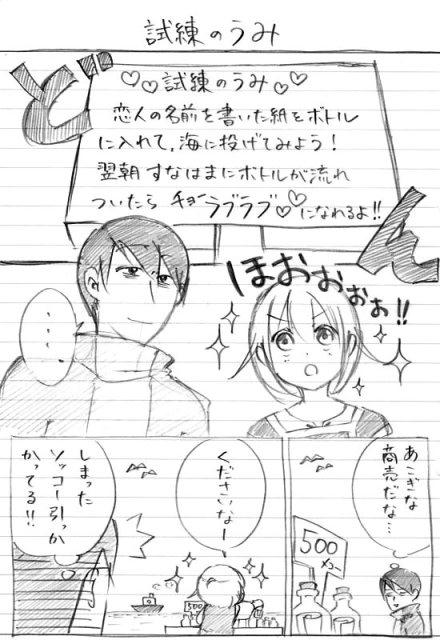 試練のうみ
ど
ん
♡♡試練のうみ♡♡
恋人の名前を書いた紙をボトル
に入れて、海に投げてみよう!
翌朝すなはまにボトルが流れ
ついたら チョーラブラブ♡♡になれるよ!!
ほおおおぉぉ!!
・・・・
あこぎな
商売だな…
500
メニュー
くださいなー
500
しまった
ソッコー引っか
かってる!!